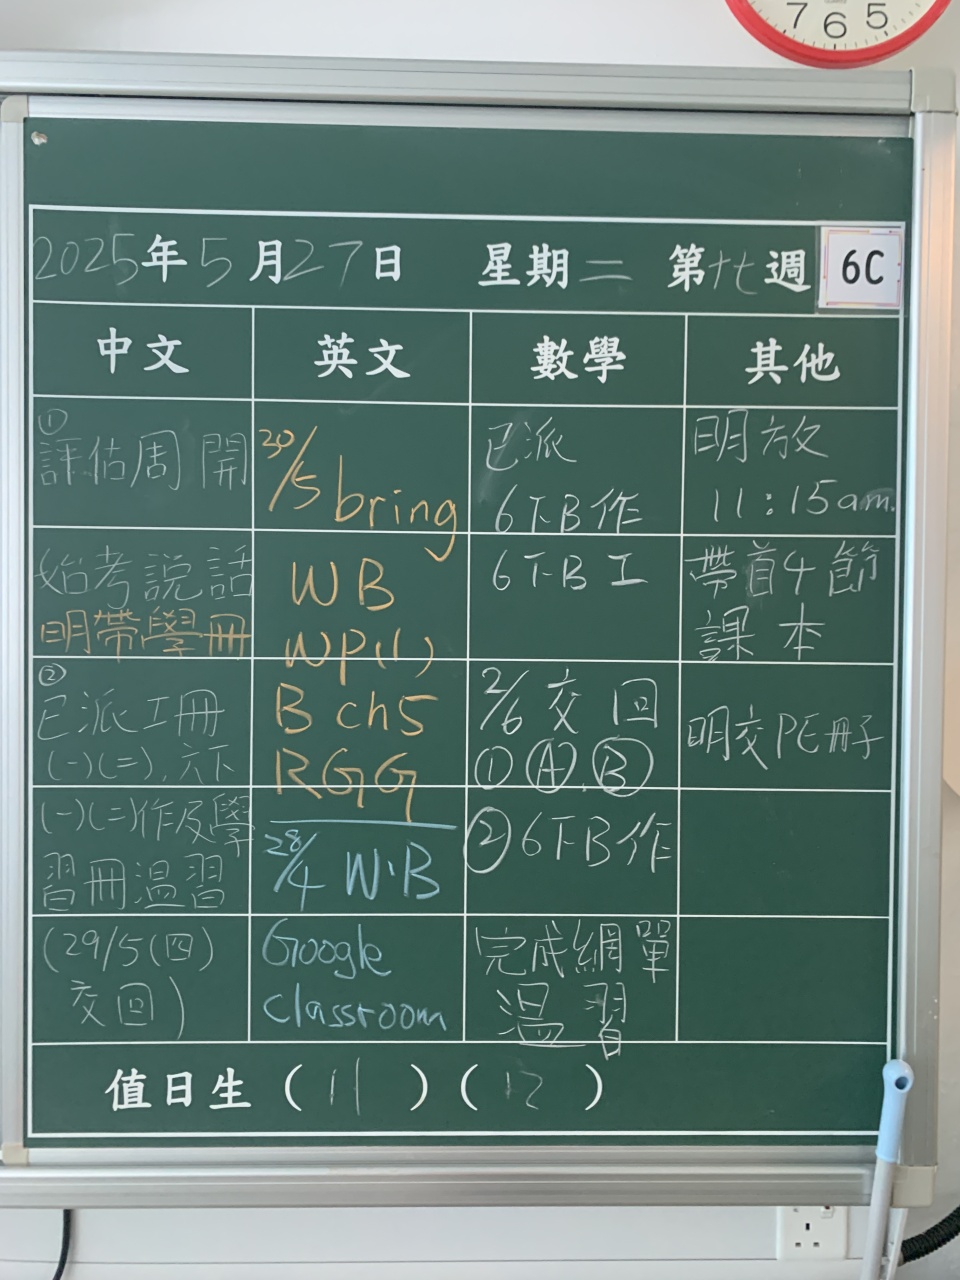 7 6 5
2025年5月27日 星期二 第十七週 6C
中文 英文 數學 其他
①
評估周開
始考說話
明帶學冊
②
已派工冊
(一)(二),六下
(一)(二)作及學
習冊溫習
(29/5(四)
交回)
30/5 bring
WB
WP(1)
B ch5
RGG
28/4 W'B
Google
classroom
已派
6下B作
6下B工
2/6 交回
①Ⓐ.Ⓑ
②6下B作
完成網單
溫習
明放
11:15am.
帶首4節
課本
明交PE冊子
值日生 (11)(12)